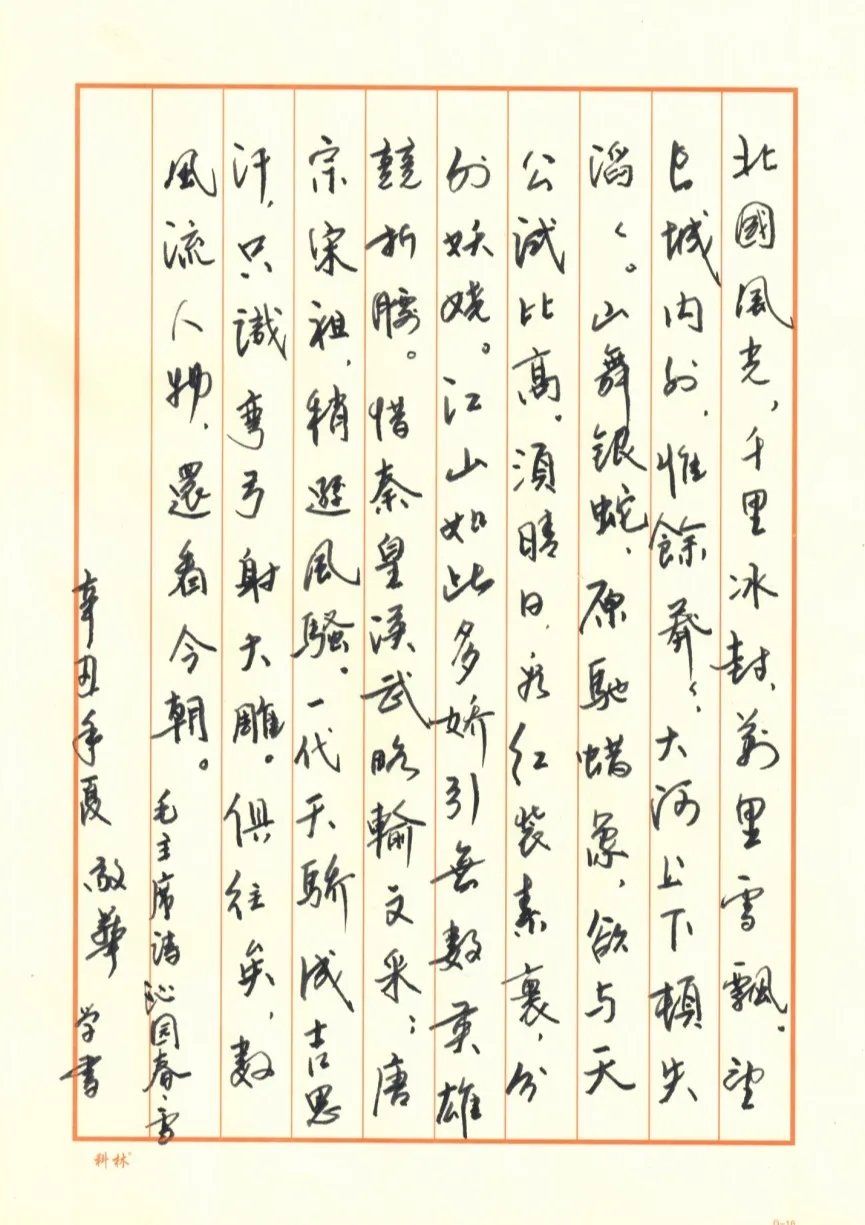 北國風光，千里冰封，萬里雪飄。望
長城内外，惟餘莽〻；大河上下頓失
滔〻。山舞銀蛇，原馳蜡象，欲与天
公試比高。須晴日，看紅裝素裹，分
外妖嬈。江山如此多嬌引無數英雄
競折腰。惜秦皇漢武略輸文采；唐
宗宋祖，稍遜風騷。一代天驕成吉思
汗，只識彎弓射大雕。俱往矣，數
風流人物，還看今朝。毛主席詩沁园春·雪
辛丑年夏 敬華 学書
科林